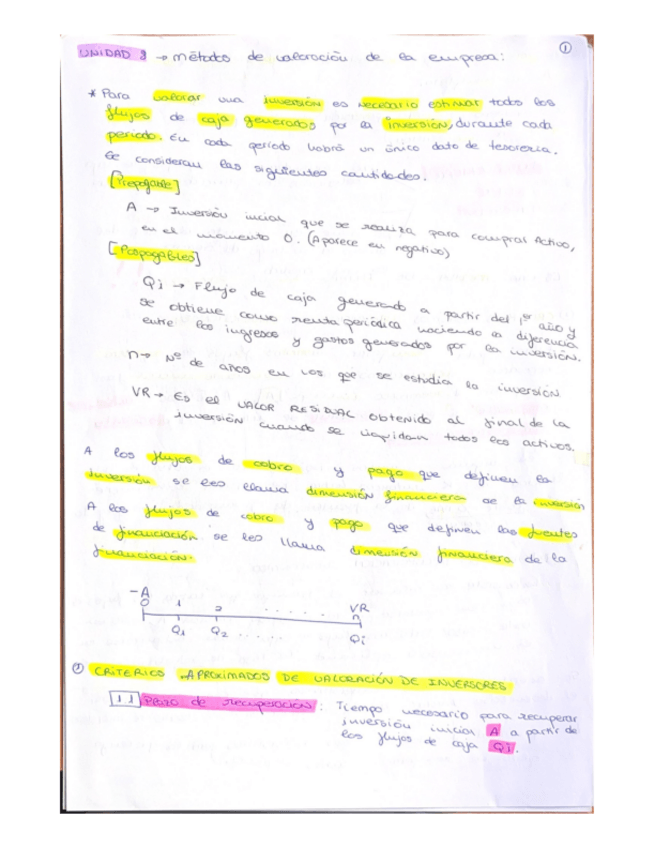 ①
UNIDAD 3 → métodos de valoración de la empresa:
* Para valorar una inversión es necesario estimar todos los
flujos de caja generados por la inversión, durante cada
periodo. En cada período habrá un único dato de tesorería.
Se consideran las siguientes cantidades.
A → Inversión inicial que se realiza para comprar Activo,
en el momento 0. (Aparece en negativo)
Qi → Flujo de caja generado a partir del 1º año y
se obtiene como renta periódica haciendo la diferencia
entre los ingresos y gastos generados por la inversión.
n → Nº de años en los que se estudia la inversión
VR → Es el VALOR RESIDUAL obtenido al final de la
inversión cuando se liquidan todos los activos.
A los flujos de cobro y pago que definen la
inversión se les llama dimensión financiera de la inversión
A los flujos de cobro y pago que definen las fuentes
de financiación se les llama dimensión financiera de la
financiación.
-A
0 1 2 . . . . . . VR
n
Q1 Q2 . . . . . Qi
① CRITERIOS APROXIMADOS DE VALORACIÓN DE INVERSORES
1.1 Plazo de recuperación: Tiempo necesario para recuperar
inversión inicial A a partir de
los flujos de caja Qi.